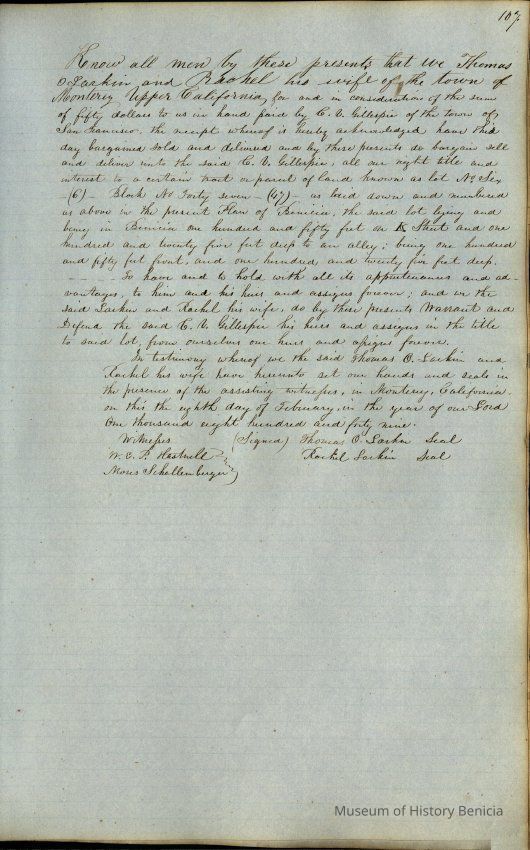 107
Know all men by these presents that we Thomas
O. Larkin and Rachel his wife of the town of
Monterey Upper California, for and in consideration of the sum
of fifty dollars to us in hand paid by C. V. Gillespie of the town of
San Francisco, the receipt whereof is hereby acknowledged have this
day bargained sold and delivered and by these presents do bargain sell
and deliver unto the said C. V. Gillespie, all our right title and
interest to a certain tract or parcel of land known as lot No Six
-(6)- Block No Forty seven -(47)- as laid down and numbered
as above in the present Plan of Benicia, the said lot lying and
being in Benicia one hundred and fifty feet on K Street and one
hundred and twenty five feet deep to an alley; being one hundred
and fifty feet front, and one hundred and twenty five feet deep.
To have and to hold with all its appurtenances and ad-
vantages, to him and his heirs and assigns forever; and we the
said Larkin and Rachel his wife, do by these presents Warrant and
Defend the said C. V. Gillespie his heirs and assigns in the title
to said lot, from ourselves our heirs and assigns forever.
In testimony whereof we the said Thomas O. Larkin and
Rachel his wife have hereunto set our hands and seals in
the presence of the assisting witnesses, in Monterey, California
on this the eighth day of February, in the year of our Lord
One thousand eight hundred and forty nine.
Witnesses (Signed) Thomas O. Larkin Seal
W. E. P. Hartnell Rachel Larkin Seal
Moses Schallenberger
Museum of History Benicia